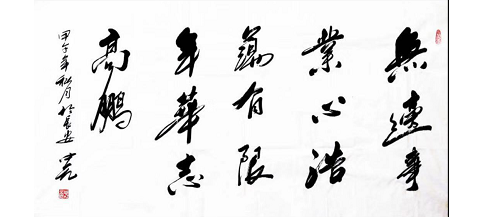 無邊事
業心浩
瀚有限
年華志
高鵬
甲午年秋月於長安